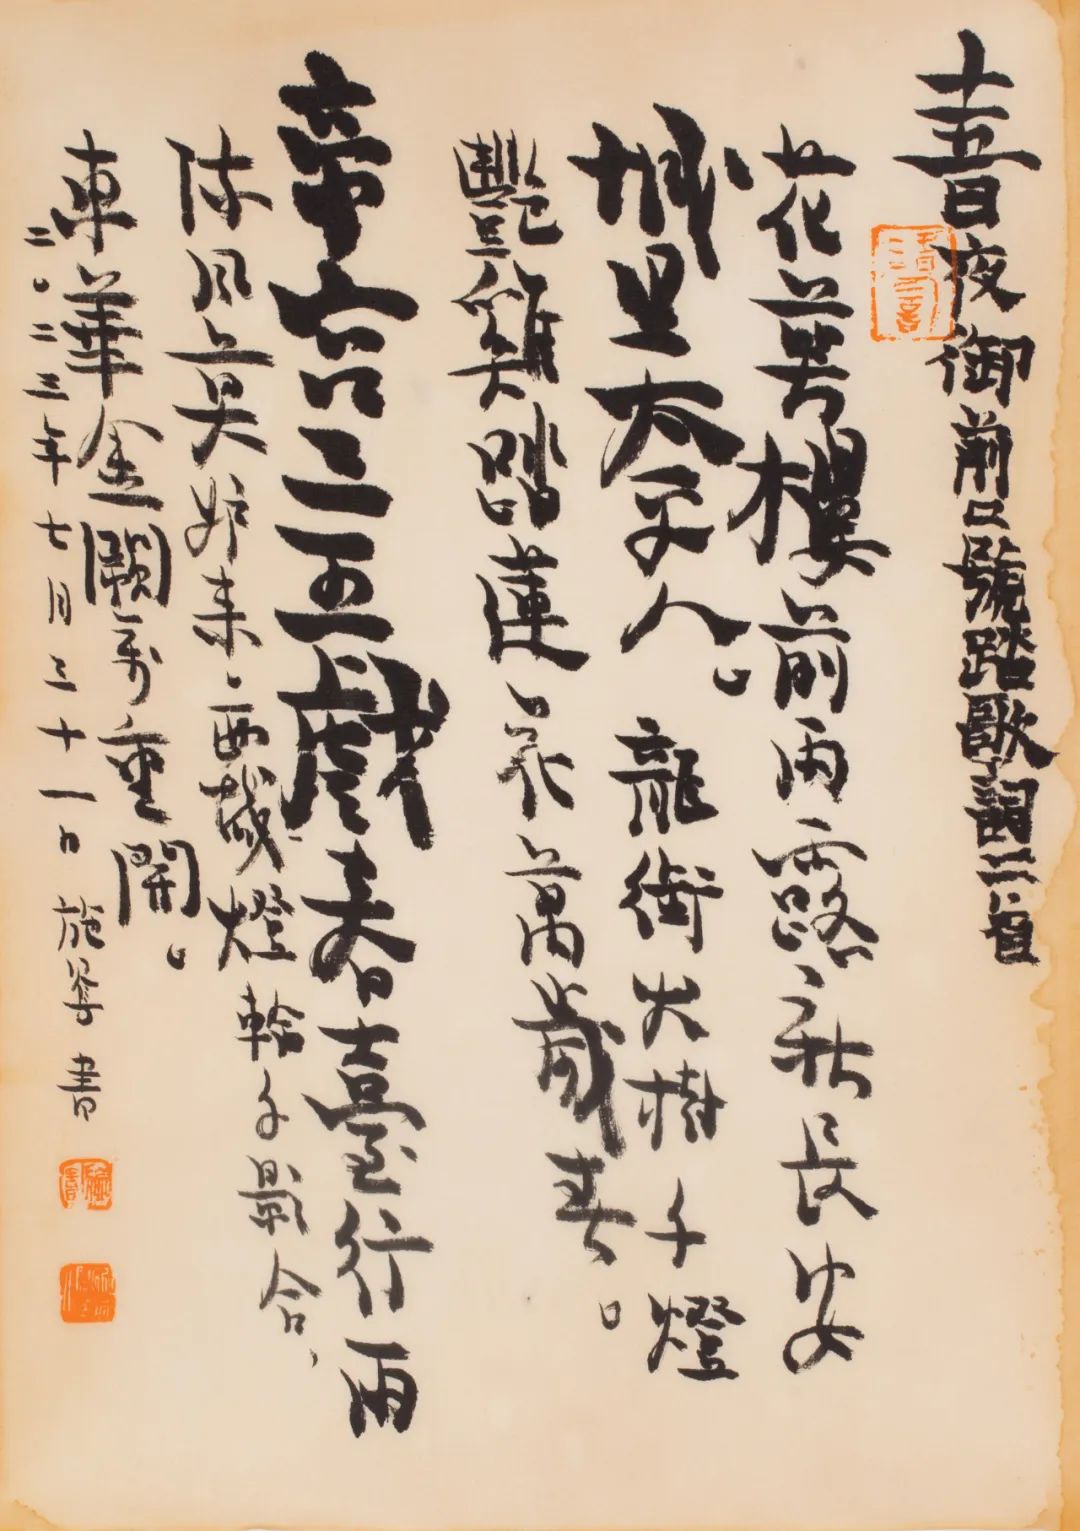 十五日夜御前口號踏歌詞二首
花萼樓前雨露新長安
城里太平人。龍銜火樹千燈
艷雞踏蓮花萬歲春。
帝宮三五戲春臺行雨
流風莫妒來、西域燈輪千影合、
東華金闕萬重開。
二〇二三年七月三十一日施書